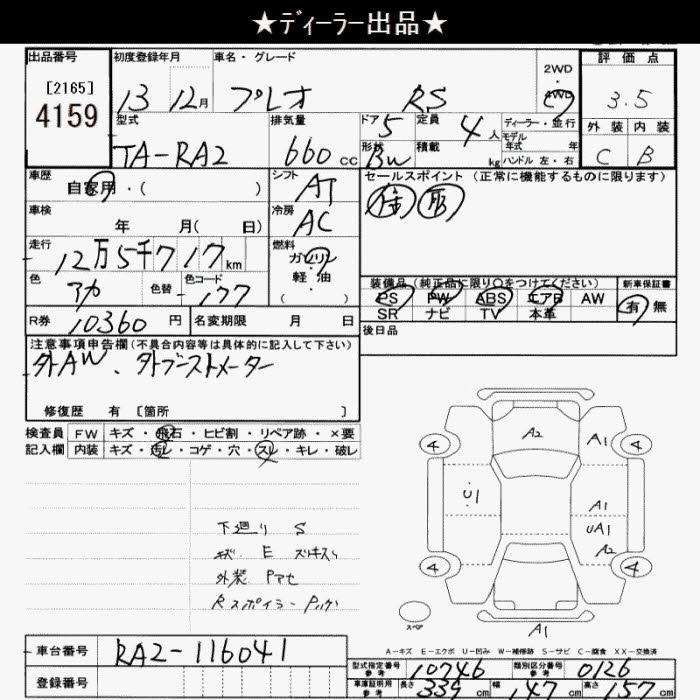 ★ディーラー出品★
出品番号
[2165]
4159
初度登録年月
13 12月
車名・グレード
プレオ RS
2WD
・
4WD
評価点
3.5
外装 内装
C B
型式
TA-RA2
排気量
660 cc
ドア 5
定員 4 人
形状 BW
積載 kg
ディーラー・並行
モデル
年式 年
ハンドル 左・右
車歴
自家用・( )
シフト
AT
セールスポイント (正常に機能するものに限ります)
車検
年 月( 日)
冷房
AC
走行
12万5千717km
燃料
ガソリン
・
軽・油
( )
色
アカ
色替
色コード
177
装備品(純正品に限り○をつけてください)
PS PW ABS エアB AW
SR ナビ TV 本革
新車保証書
有 無
R券 10360 円
名変期限 月 日
後日品
注意事項申告欄(不具合内容等は具体的に記入して下さい)
外AW、外ブーストメーター
修復歴 有 [箇所 ]
検査員 FW キズ・飛石・ヒビ割・リペア跡・×要
記入欄 内装 キズ・汚レ・コゲ・穴・スレ・キレ・破レ
下廻り S
E
外装
Rスポイラー
A2
A1
4
4
U1
A1
UA1
A2
4
4
スペア
A1
A-キズ E-エクボ U-凹み W-補修跡 S-サビ C-腐食 XX-交換済
車台番号 RA2-116041
登録番号
型式指定番号
参考
10746
類別区分番号
参考
0126
車庫証明用
参考
長さ 339 cm 幅 147 cm 高さ 157 cm